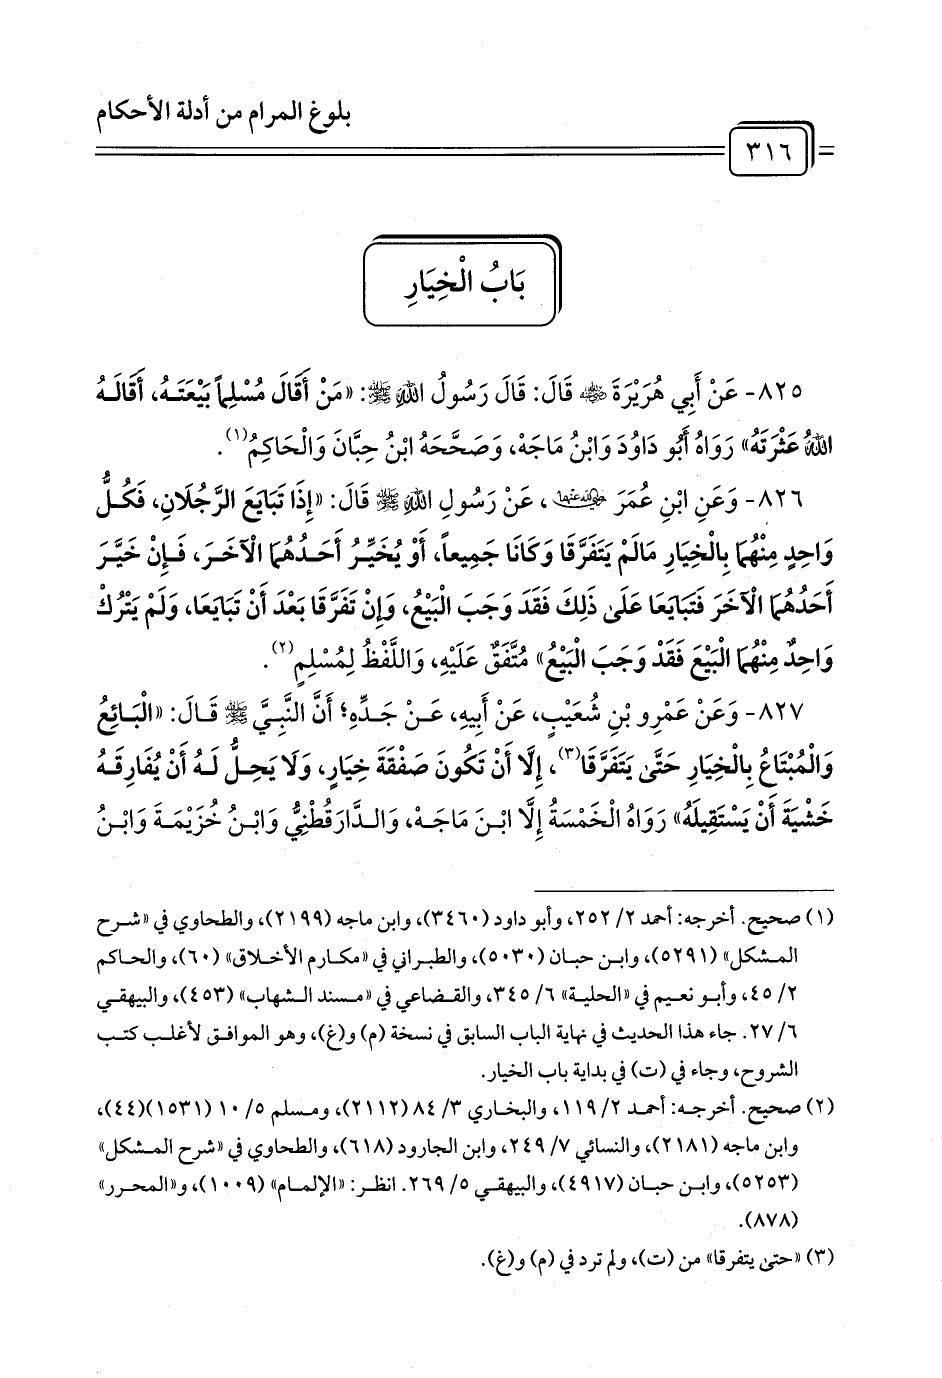 بلوغ المرام من أدلة الأحكام
٣١٦
بَابُ الْخِيَارِ
٨٢٥- عَنْ أَبِي هُرَيْرَةَ ﵁ قَالَ: قَالَ رَسُولُ اللهِ ﷺ: «مَنْ أَقَالَ مُسْلِماً بَيْعَتَهُ، أَقَالَهُ
اللهُ عَثْرَتَهُ» رَوَاهُ أَبُو دَاوُدَ وَابْنُ مَاجَهْ، وَصَحَّحَهُ ابْنُ حِبَّانَ وَالْحَاكِمُ(١).
٨٢٦- وَعَنِ ابْنِ عُمَرَ ﵄، عَنْ رَسُولِ اللهِ ﷺ قَالَ: «إِذَا تَبَايَعَ الرَّجُلَانِ، فَكُلُّ
وَاحِدٍ مِنْهُمَا بِالْخِيَارِ مَالَمْ يَتَفَرَّقَا وَكَانَا جَمِيعاً، أَوْ يُخَيِّرُ أَحَدُهُمَا الْآخَرَ، فَإِنْ خَيَّرَ
أَحَدُهُمَا الْآخَرَ فَتَبَايَعَا عَلَى ذَلِكَ فَقَدَ وَجَبَ الْبَيْعُ، وَإِنْ تَفَرَّقَا بَعْدَ أَنْ تَبَايَعَا، وَلَمْ يَتْرُكْ
وَاحِدٌ مِنْهُمَا الْبَيْعَ فَقَدْ وَجَبَ الْبَيْعُ» مُتَّفَقٌ عَلَيْهِ، وَاللَّفْظُ لِمُسْلِمٍ(٢).
٨٢٧- وَعَنْ عَمْرِو بْنِ شُعَيْبٍ، عَنْ أَبِيهِ، عَنْ جَدِّهِ؛ أَنَّ النَّبِيَّ ﷺ قَالَ: «الْبَائِعُ
وَالْمُبْتَاعُ بِالْخِيَارِ حَتَّى يَتَفَرَّقَا(٣)، إِلَّا أَنْ تَكُونَ صَفْقَةَ خِيَارٍ، وَلَا يَحِلُّ لَهُ أَنْ يُفَارِقَهُ
خَشْيَةَ أَنْ يَسْتَقِيلَهُ» رَوَاهُ الْخَمْسَةُ إِلَّا ابْنَ مَاجَهْ، وَالدَّارَقُطْنِيُّ وَابْنُ خُزَيْمَةَ وَابْنُ
(١) صحيح. أخرجه: أحمد ٢/ ٢٥٢، وأبو داود (٣٤٦٠)، وابن ماجه (٢١٩٩)، والطحاوي في «شرح
المشكل» (٥٢٩١)، وابن حبان (٥٠٣٠)، والطبراني في «مكارم الأخلاق» (٦٠)، والحاكم
٢/ ٤٥، وأبو نعيم في «الحلية» ٦/ ٣٤٥، والقضاعي في «مسند الشهاب» (٤٥٣)، والبيهقي
٦/ ٢٧. جاء هذا الحديث في نهاية الباب السابق في نسخة (م) و(غ)، وهو الموافق لأغلب كتب
الشروح، وجاء في (ت) في بداية باب الخيار.
(٢) صحيح. أخرجه: أحمد ٢/ ١١٩، والبخاري ٣/ ٨٤ (٢١١٢)، ومسلم ٥/ ١٠ (١٥٣١)(٤٤)،
وابن ماجه (٢١٨١)، والنسائي ٧/ ٢٤٩، وابن الجارود (٦١٨)، والطحاوي في «شرح المشكل»
(٥٢٥٣)، وابن حبان (٤٩١٧)، والبيهقي ٥/ ٢٦٩. انظر: «الإلمام» (١٠٠٩)، و«المحرر»
(٨٧٨).
(٣) «حتى يتفرقا» من (ت)، ولم ترد في (م) و(غ).